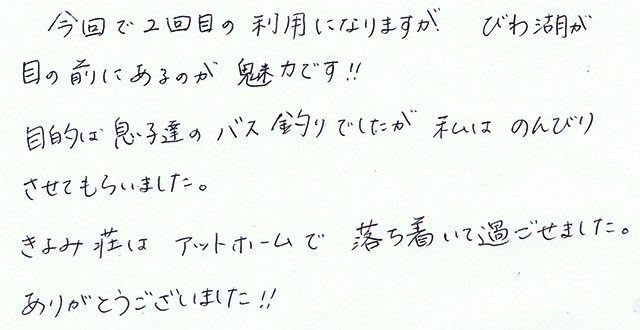 今回で2回目の利用になりますが びわ湖が
目の前にあるのが魅力です!!
目的は息子達のバス釣りでしたが 私はのんびり
させてもらいました。
きよみ荘は アットホームで 落ち着いて過ごせました。
ありがとうございました!!